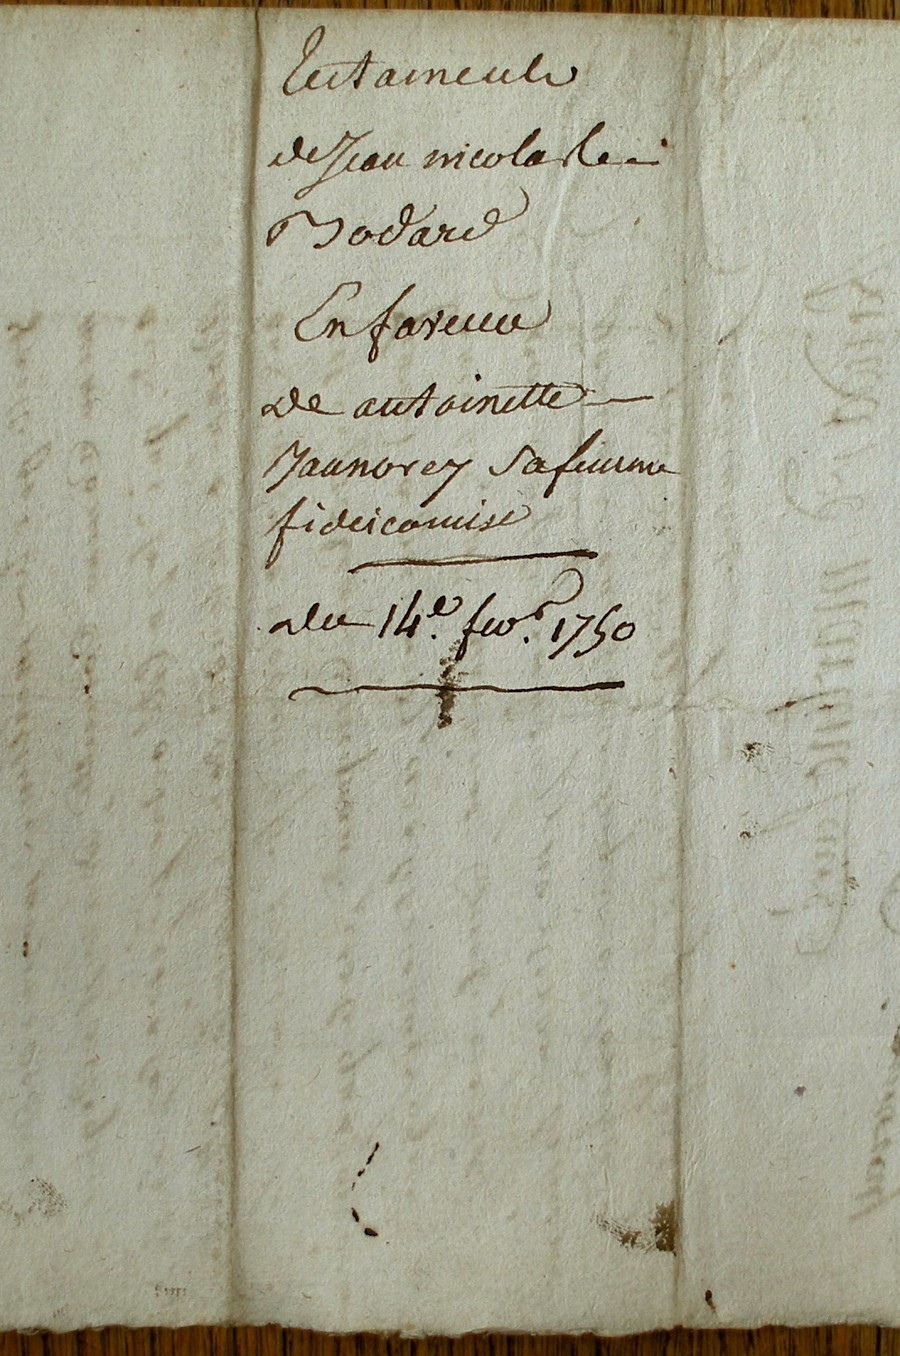 Testament
de Jean nicolas le
Bodard
En faveur
de antoinette
Jaunorey sa femme
fideicomise
du 14e. fevr. 1750